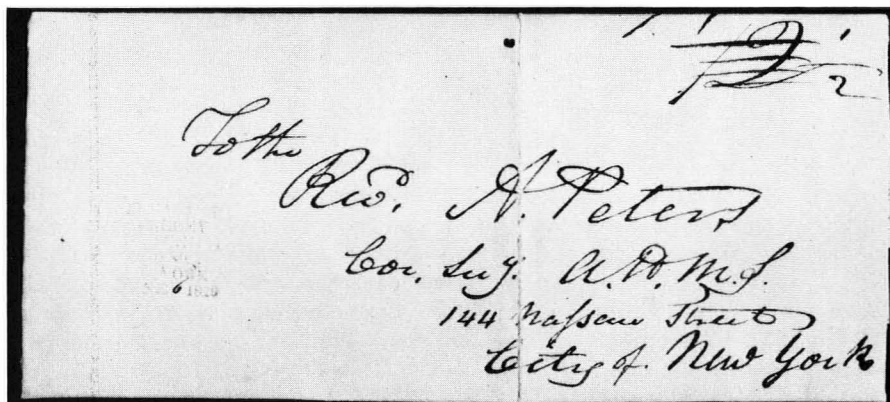 To the
Revd. A. Peters
Cor. Secy. A.H.M.S.
144 Nassau Street
City of New York